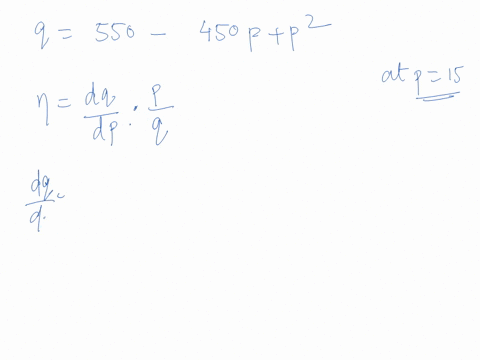 q = 550 - 450p + p²
at p = 15
η = dq/dp · p/q
dq/d